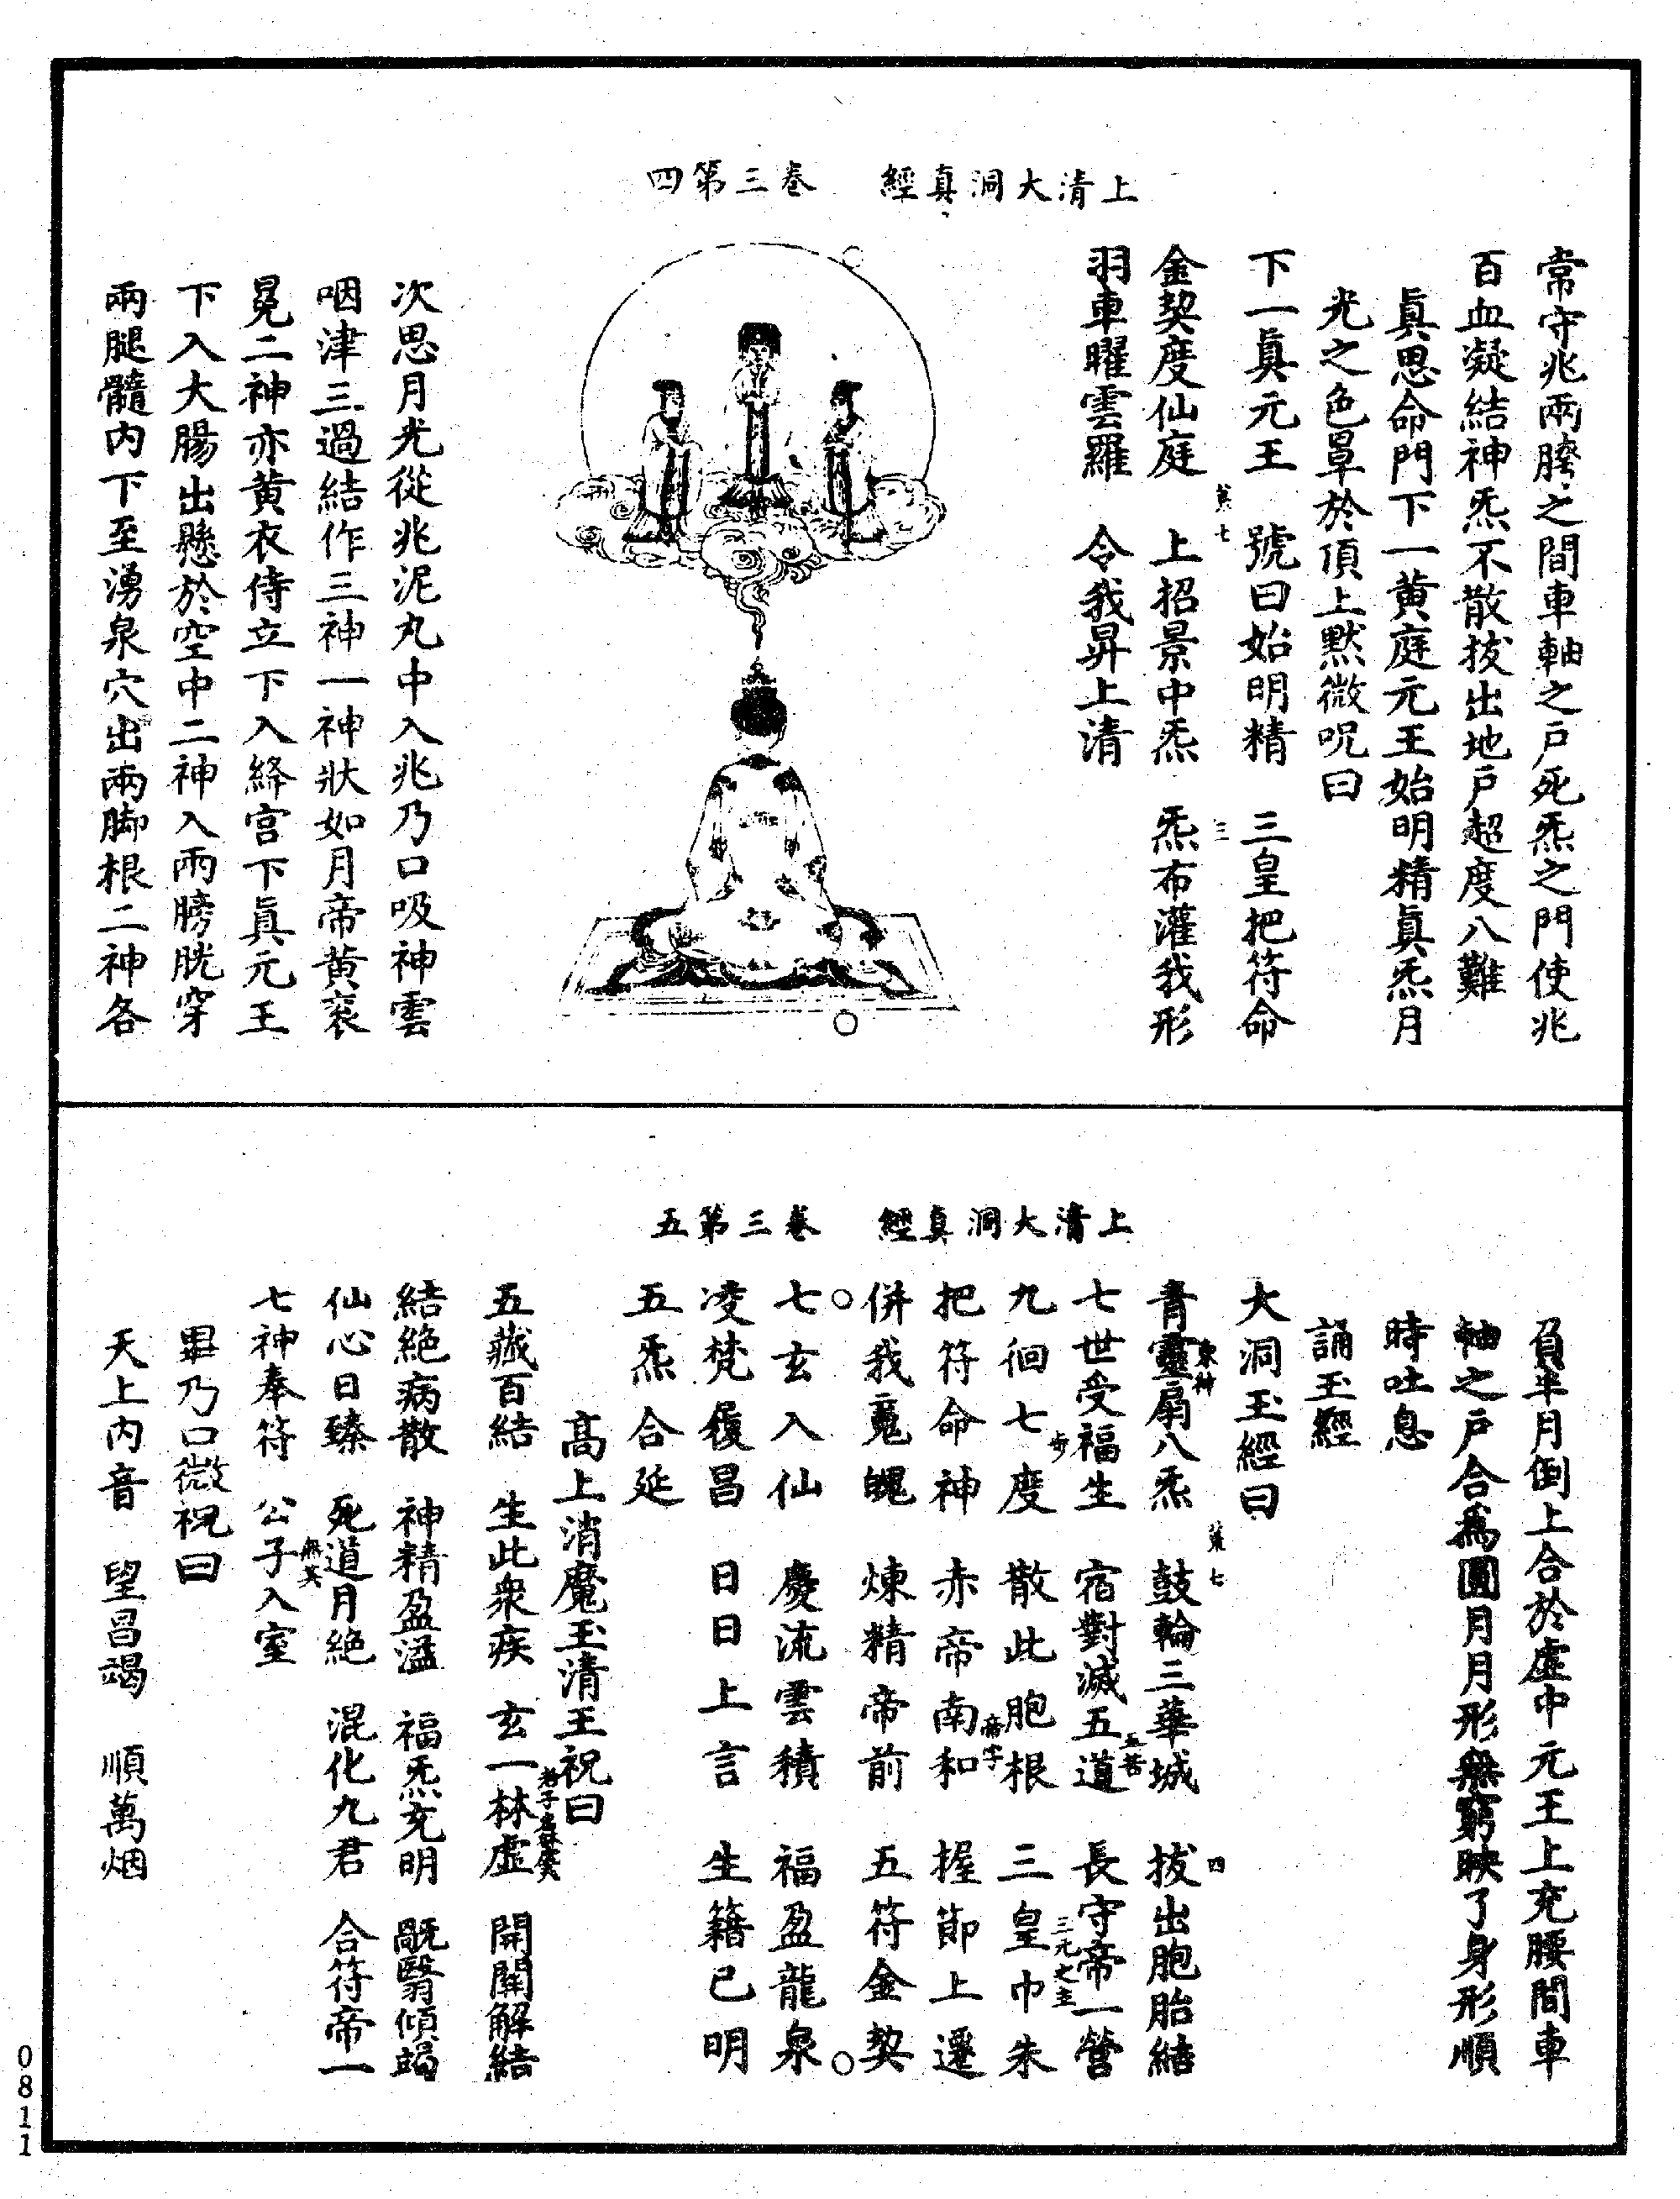 上清大洞真經　卷三第四
常守兆兩胯之間車軸之戶死炁之門使兆
百血凝結神炁不散拔出地戶超度八難
眞思命門下一黄庭元王始明精眞炁月
光之色罩於頂上默微呪曰
下一眞元王　號曰始明精　三皇把符命
金契度仙庭　上招景中炁　炁布灌我形
七　三
羽車曜雲羅　令我昇上清
次思月光從兆泥丸中入兆乃口吸神雲
咽津三過結作三神一神狀如月帝黄衮
冕二神亦黄衣侍立下入絳宫下眞元王
下入大腸出懸於空中二神入兩膀胱穿
兩腿髓内下至湧泉穴出兩脚根二神各
上清大洞真經　卷三第五
負半月倒上合於虛中元王上充腰間車
軸之戶合爲圓月月形無窮映了身形順
時吐息
誦玉經
大洞玉經曰
青靈扇八炁　鼓輪三華城　拔出胞胎結
東神
七　四
七世受福生　宿對滅五道　長守帝一營
五苦
九徊七度　散此胞根　三皇巾朱
步　三元之
把符命神　赤帝南和　握節上遷
帝字
併我䰟魄　煉精帝前　五符金契
七玄入仙　慶流雲積　福盈龍泉
凌梵履昌　日日上言　生籍已明
五炁合延
高上消魔玉清王祝曰
五藏百結　生此衆疾　玄一林虛　開關解結
結絶病散　神精盈溢　福炁充明　翳傾竭
仙心日臻　死道月絶　混化九君　合符帝一
七神奉符　公子入室
畢乃口微祝曰
天上内音　望昌竭　順萬烟
0811